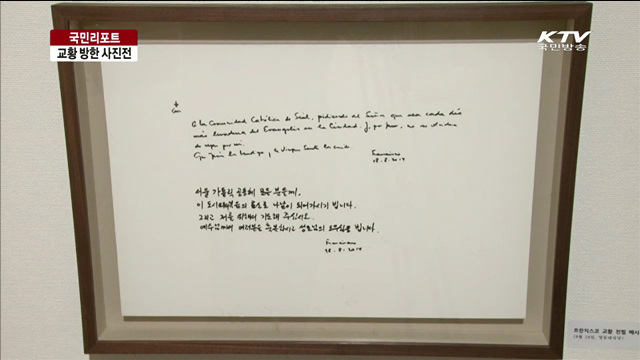 국민리포트
교황 방한 사진전
KTV
국민방송
A la Comunidad Católica de Seúl, pidiendo al Señor que sea cada día
más levadura del Evangelio en la Ciudad. Y, por favor, no se olviden
de rezar por mí.
Que Jesús los bendiga y la Virgen Santa los cuide.
Francisco
18.8.2014
서울 가톨릭 공동체 모든 분들께,
이 도시에 복음의 누룩으로 나날이 되어가시기 빕니다.
그리고 저를 위해서 기도해 주십시오.
예수님께서 여러분을 축복하시고 성모님의 도우심을 빕니다.
Francisco
18.8.2014
프란치스코 교황 친필 메시